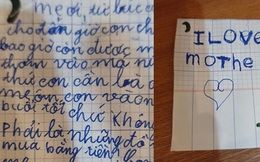 mẹ ơi, từ lúc co
cho đến giờ con ch
bao giờ con được m
thơm vào má n
thứ con cần là c
mẹ con
buổi tối chứ không
Phải là những đồ
mua bằng tiền
I LOVE
mothe